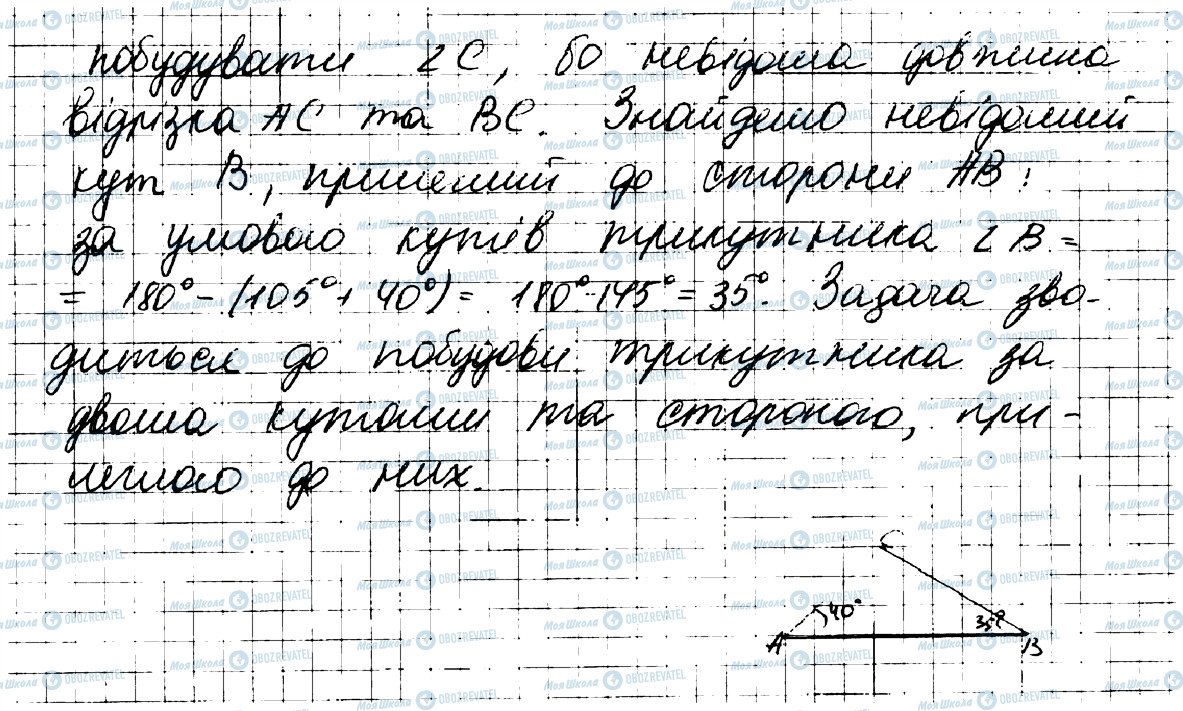 побудувати ∠C, бо невідома довжина
відрізка AC та BC. Знайдемо невідомий
кут B, прилеглий до сторони AB:
за умовою кутів трикутника ∠B =
= 180° - (105° + 40°) = 180° - 145° = 35°. Задача зво-
диться до побудови трикутника за
двома кутами та стороною, при-
леглою до них.
C
40°
35°
A
B
Моя Школа OBOZREVATEL